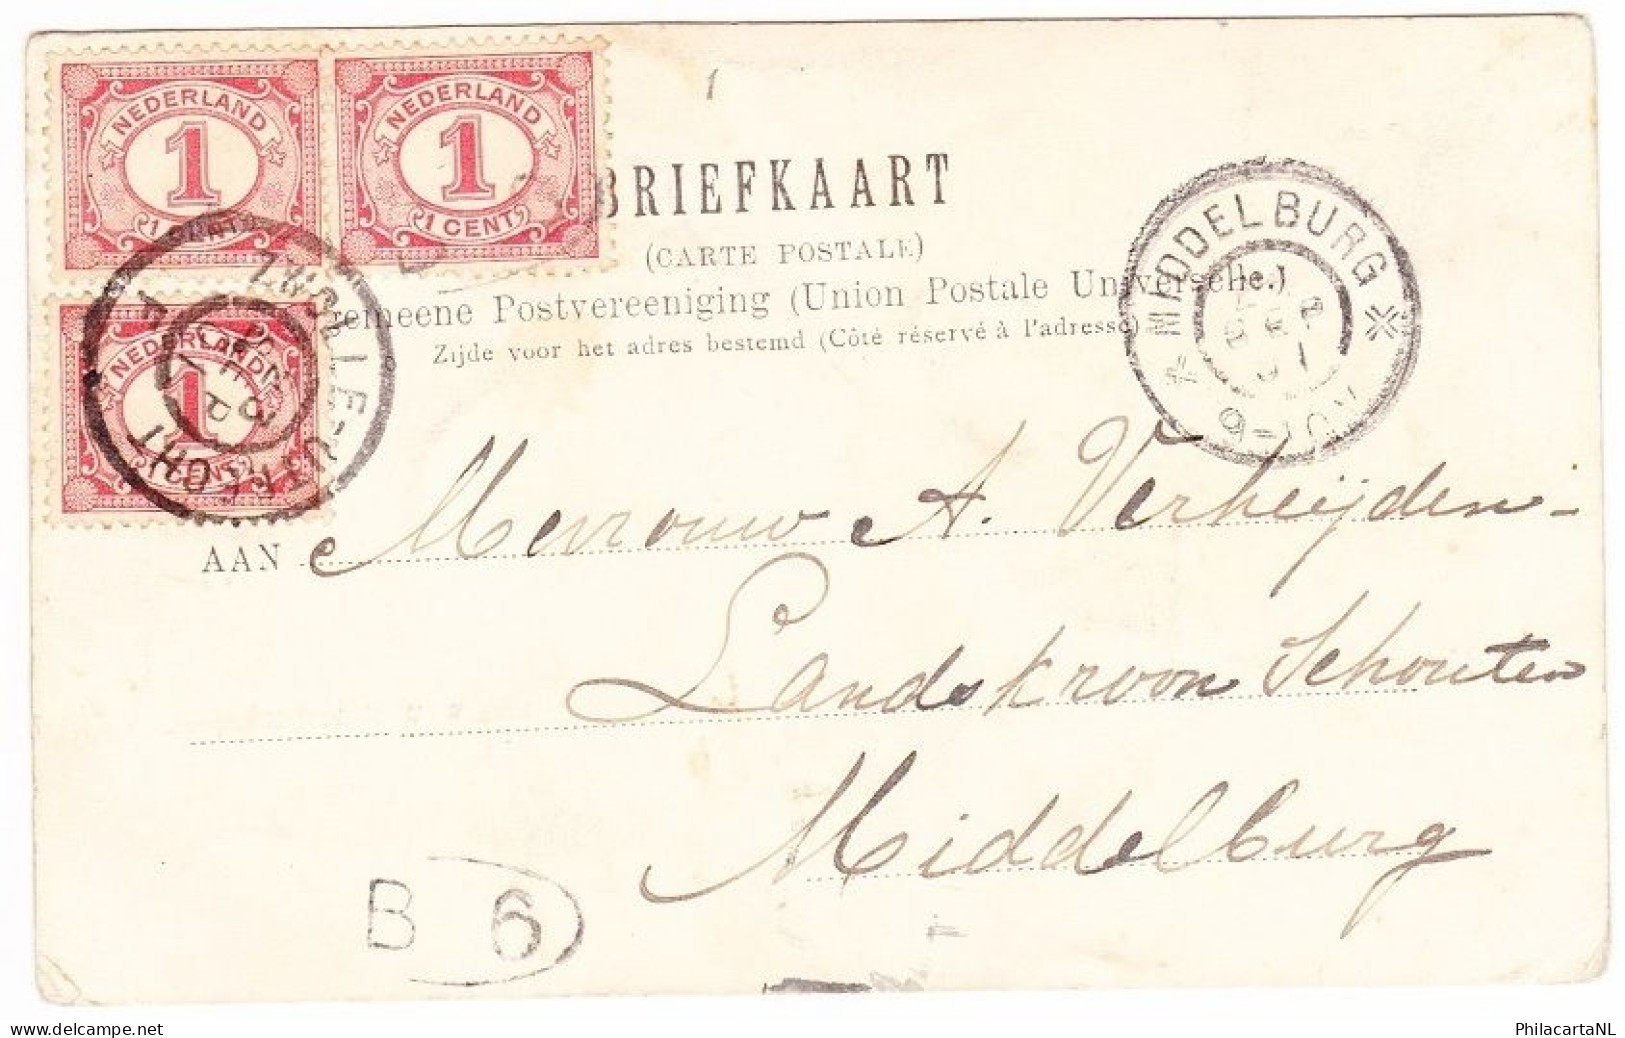 NEDERLAND
1
1 CENT
NEDERLAND
1
1 CENT
NEDERLAND
1
CENT
BRIEFKAART
(CARTE POSTALE)
gemeene Postvereeniging (Union Postale Universelle.)
Zijde voor het adres bestemd (Côté réservé à l'adresse)
MIDDELBURG
AAN Mevrouw A. Verheijden-
Landskroon Schouten
Middelburg
B 6
PhilacartaNL